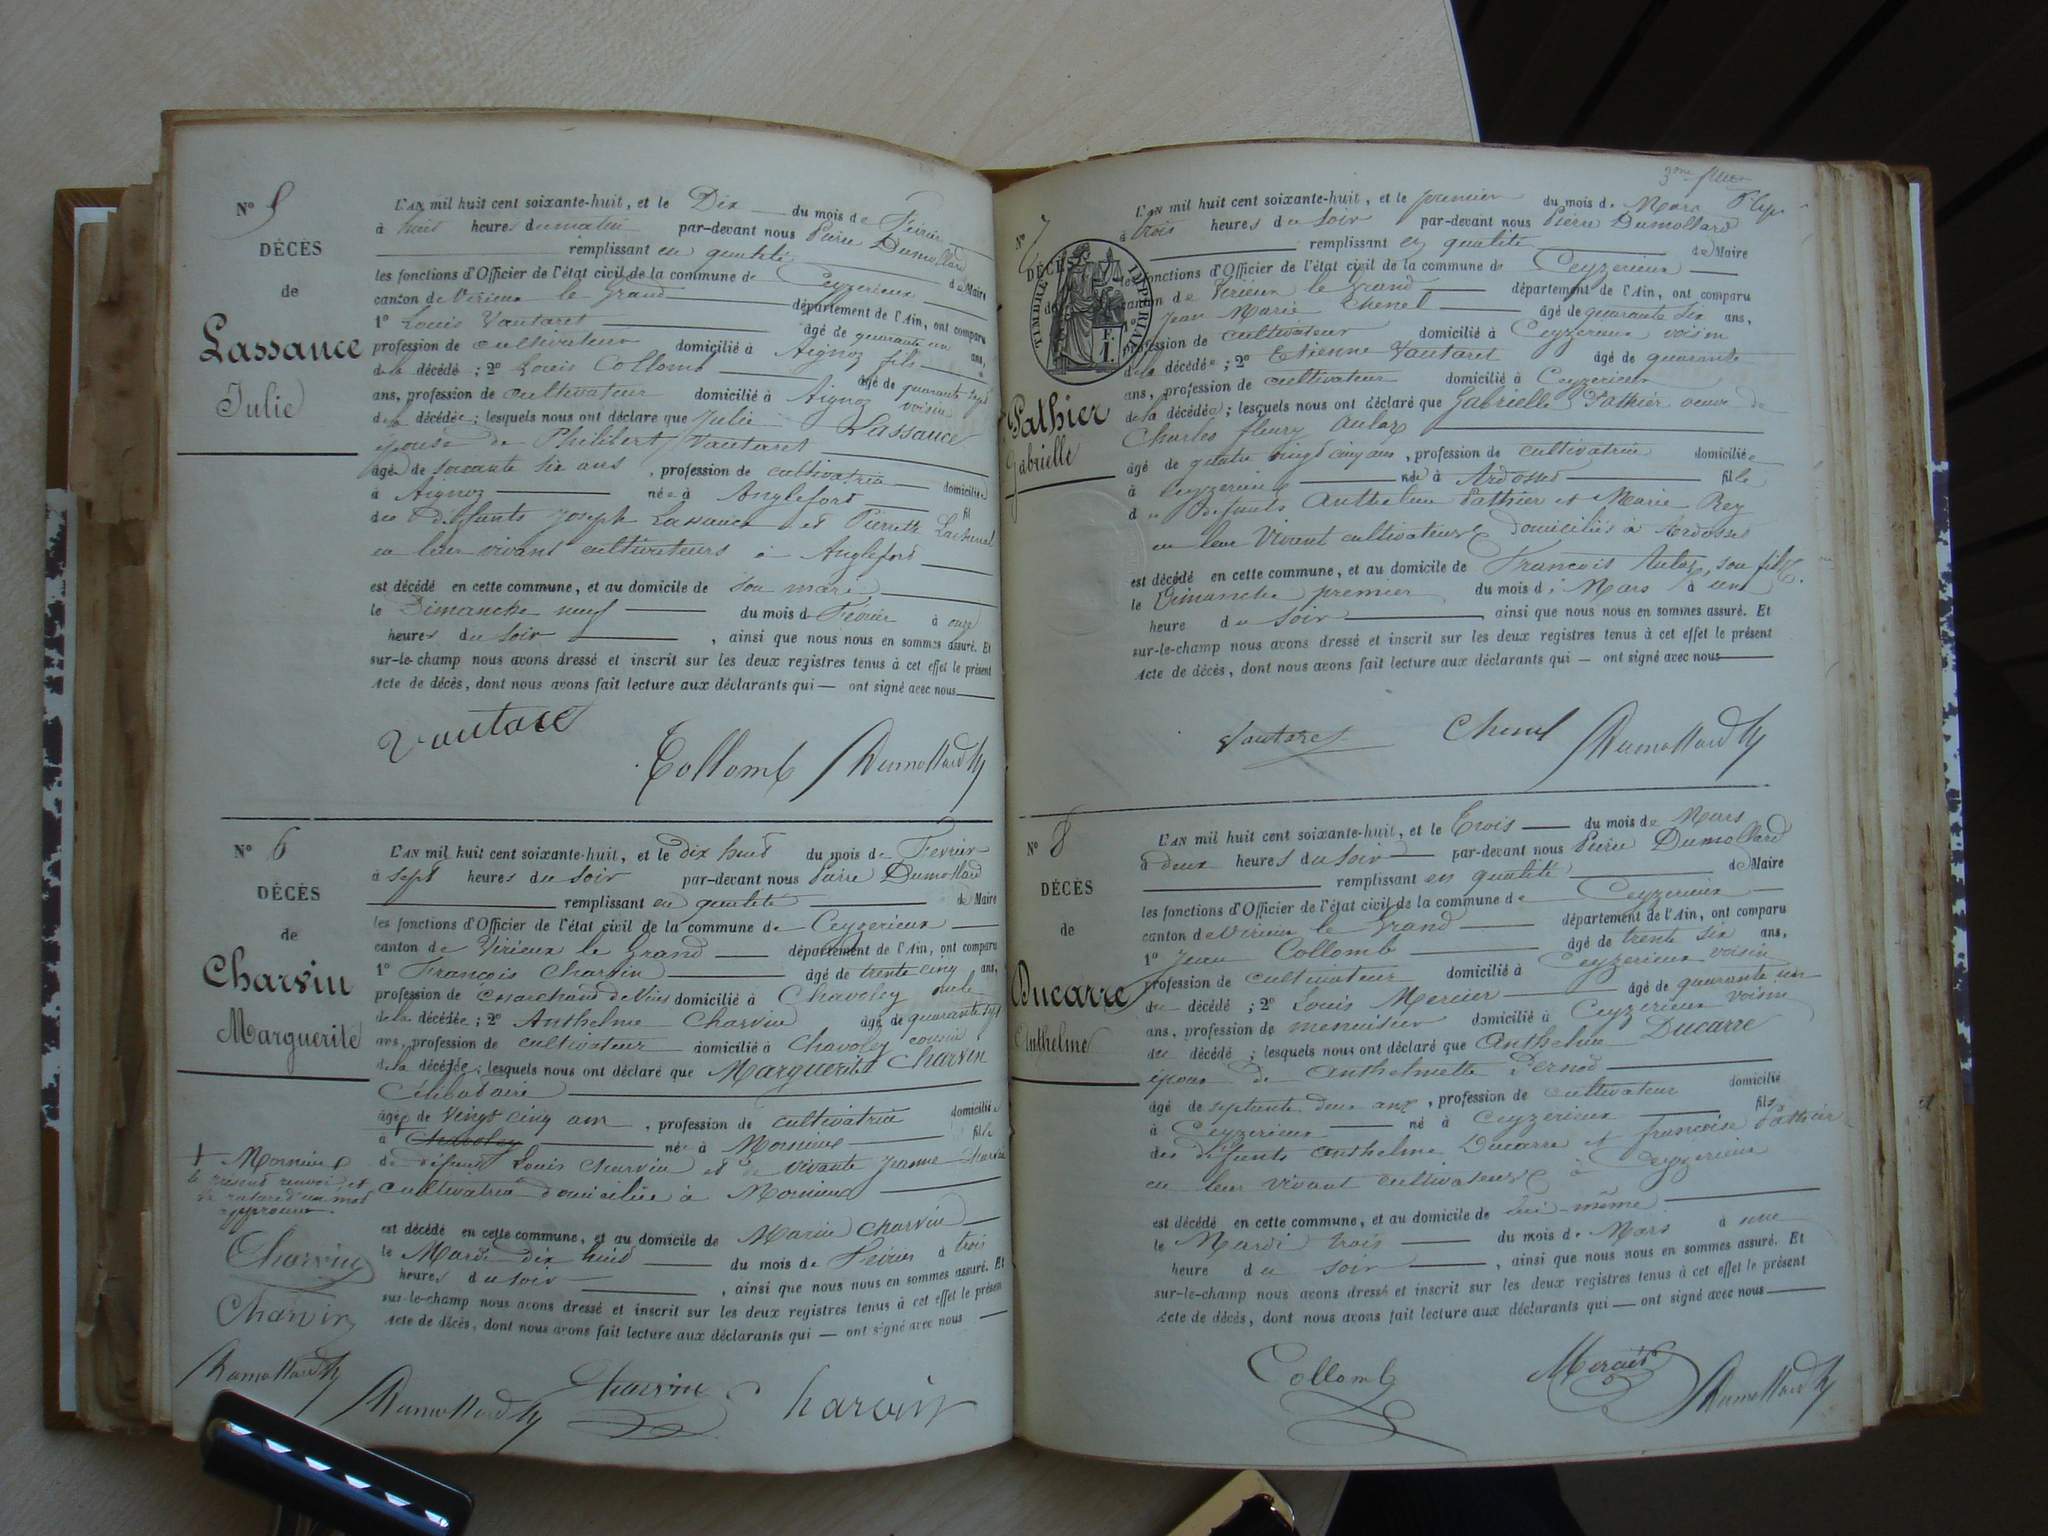 N° 5
DÉCÈS
de
Lassance
Julie
L'AN mil huit cent soixante-huit, et le Dix du mois de Février
à huit heures du matin par-devant nous Pierre Dumollard
remplissant en qualité de Maire
les fonctions d'Officier de l'état civil de la commune de Ceyzerieux
canton de Virieux le grand département de l'Ain, ont comparu
1° Louis Vautaret âgé de quarante un ans,
profession de cultivateur domicilié à Aignoz fils
de la décédé ; 2° Louis Collomb âgé de quarante sept
ans, profession de cultivateur domicilié à Aignoz voisin
de la décédée ; lesquels nous ont déclaré que Julie Lassance
épouse de Philibert Vautaret
âgée de soixante six ans , profession de cultivatrice domiciliée
à Aignoz née à Anglefort fil
des défunts Joseph Lassance et Pierrette
en leur vivant cultivateurs à Anglefort
est décédé en cette commune, et au domicile de son mari
le Dimanche neuf du mois d Février à onze
heures du soir , ainsi que nous nous en sommes assuré. Et
sur-le-champ nous avons dressé et inscrit sur les deux registres tenus à cet effet le présent
Acte de décès, dont nous avons fait lecture aux déclarants qui — ont signé avec nous
Vautaret
Collomb Dumollard
N° 6
DÉCÈS
de
Charvin
Marguerite
L'AN mil huit cent soixante-huit, et le dix huit du mois de Février
à sept heures du soir par-devant nous Pierre Dumollard
remplissant en qualité de Maire
les fonctions d'Officier de l'état civil de la commune de Ceyzerieux
canton de Virieux le Grand département de l'Ain, ont comparu
1° François Charvin âgé de trente cinq ans,
profession de Marchand de Vins domicilié à Chavoley oncle
de la décédée ; 2° Anthelme Charvin âgé de quarante sept
ans, profession de cultivateur domicilié à Chavoley cousin
de la décédée ; lesquels nous ont déclaré que Marguerite Charvin
Célibataire
âgée de Vingt cinq ans , profession de cultivatrice domiciliée
à Chavoley née à Mornieux fille
de défunt Louis Charvin et de vivante Jeanne Charvin
cultivatrice domiciliée à Mornieux
est décédé en cette commune, et au domicile de Marie Charvin
le Mardi dix huit du mois de Février à trois
heures du soir , ainsi que nous nous en sommes assuré. Et
sur-le-champ nous avons dressé et inscrit sur les deux registres tenus à cet effet le présent
Acte de décès, dont nous avons fait lecture aux déclarants qui — ont signé avec nous
+ Mornieux
le présent renvoi et
la rature d'un mot
approuvés.
Charvin
Charvin
Dumollard
Dumollard Charvin Charvin
3me
N° 7
DÉCÈS
de
TIMBRE IMPÉRIAL
1 F.
Pathier
Gabrielle
L'AN mil huit cent soixante-huit, et le premier du mois de Mars
à trois heures du soir par-devant nous Pierre Dumollard
remplissant en qualité de Maire
les fonctions d'Officier de l'état civil de la commune de Ceyzerieux
canton de Virieux le Grand département de l'Ain, ont comparu
1° Jean Marie Chenel âgé de quarante six ans,
profession de cultivateur domicilié à Ceyzerieux voisin
de la décédée ; 2° Etienne Vautaret âgé de quarante
ans, profession de cultivateur domicilié à Ceyzerieux
de la décédée ; lesquels nous ont déclaré que Gabrielle Pathier veuve de
Charles fleury Aulaz
âgé de quatre vingt cinq ans, profession de cultivatrice domiciliée
à Ceyzerieux née à Ardosset fille
de Défunts Anthelme Pathier et Marie Rey
en leur Vivant cultivateurs domiciliés à Ardosset
est décédé en cette commune, et au domicile de François Aulaz, son fils.
le Dimanche premier du mois de Mars à une
heure du soir , ainsi que nous nous en sommes assuré. Et
sur-le-champ nous avons dressé et inscrit sur les deux registres tenus à cet effet le présent
Acte de décès, dont nous avons fait lecture aux déclarants qui — ont signé avec nous
Vautaret Chenel Dumollard
N° 8
DÉCÈS
de
Ducarre
Anthelme
L'AN mil huit cent soixante-huit, et le Trois du mois de Mars
à deux heures du soir par-devant nous Pierre Dumollard
remplissant en qualité de Maire
les fonctions d'Officier de l'état civil de la commune de Ceyzerieux
canton de Virieux le Grand département de l'Ain, ont comparu
1° Jean Collomb âgé de trente six ans,
profession de cultivateur domicilié à Ceyzerieux voisin
du décédé ; 2° Louis Mercier âgé de quarante un
ans, profession de menuisier domicilié à Ceyzerieux voisin
du décédé ; lesquels nous ont déclaré que Anthelme Ducarre
époux de Anthelmette Pernod
âgé de septante deux ans, profession de cultivateur domicilié
à Ceyzerieux né à Ceyzerieux fils
des défunts Anthelme Ducarre et françoise Pathier
en leur vivant cultivateurs à Ceyzerieux
est décédé en cette commune, et au domicile de lui-même
le Mardi trois du mois de Mars à une
heure du soir , ainsi que nous nous en sommes assuré. Et
sur-le-champ nous avons dressé et inscrit sur les deux registres tenus à cet effet le présent
Acte de décès, dont nous avons fait lecture aux déclarants qui — ont signé avec nous
Collomb Mercier Dumollard